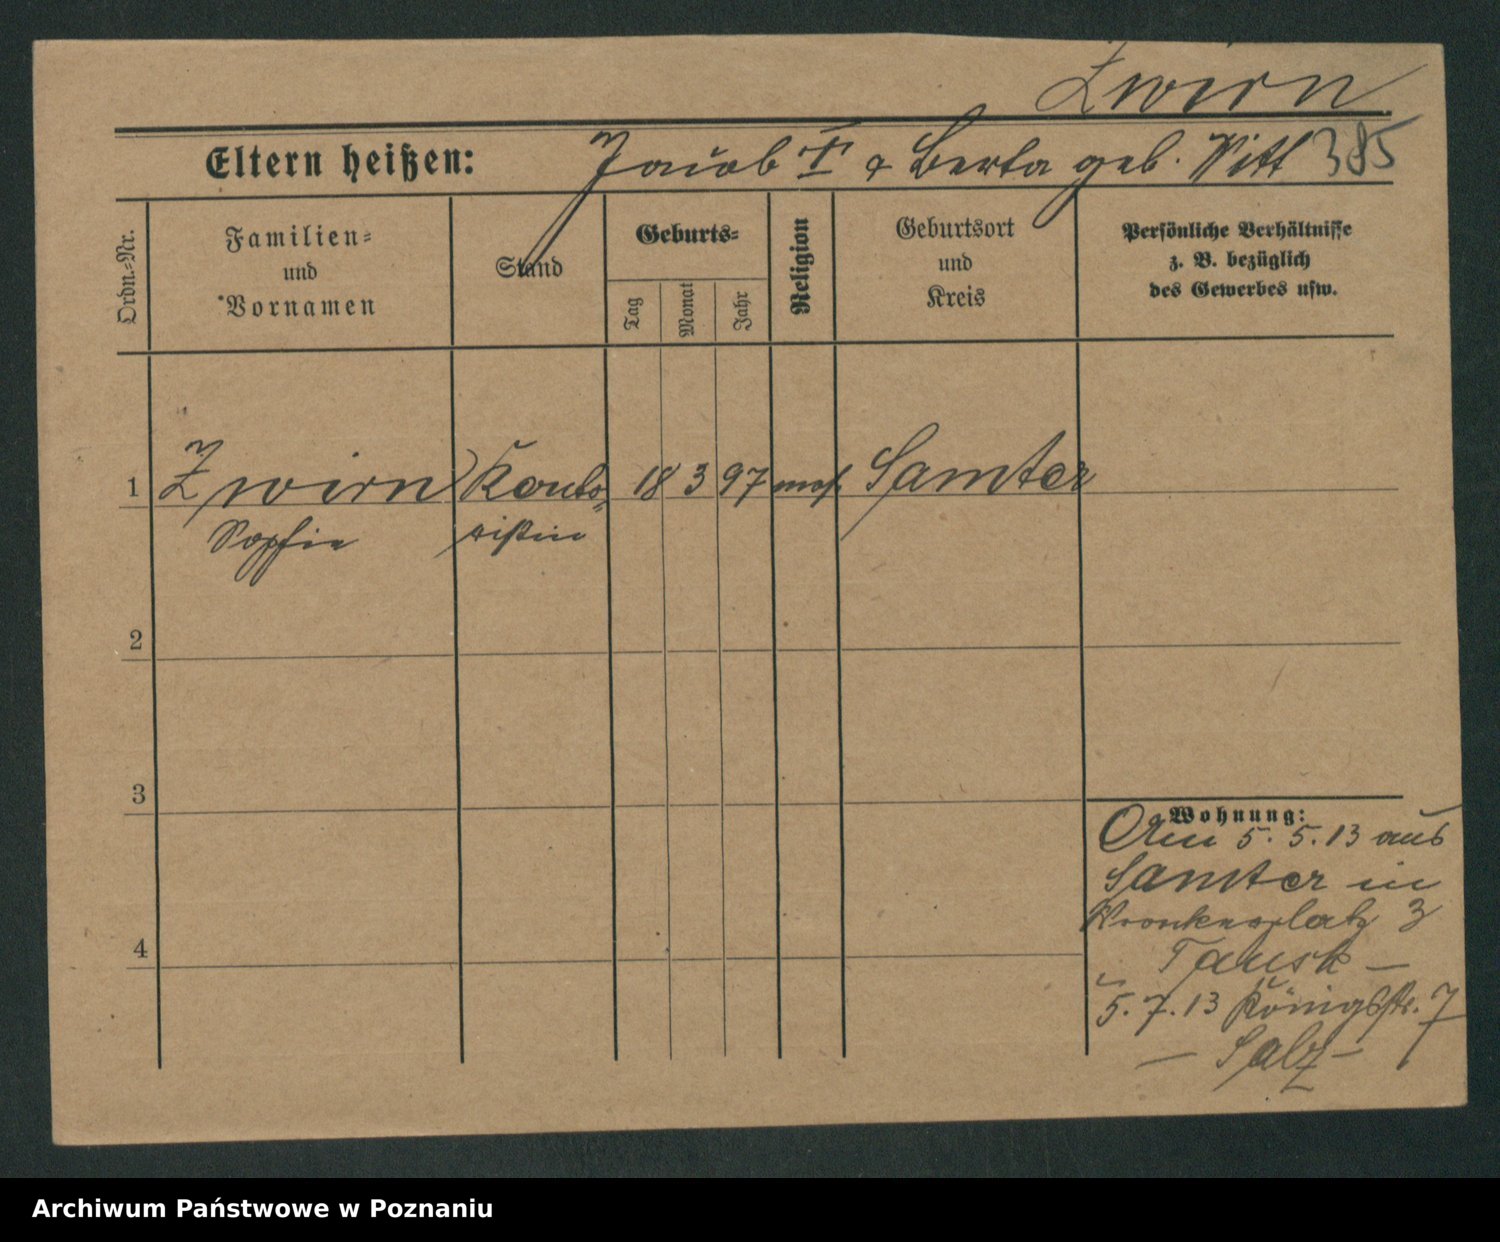 Zwirn
Eltern heißen: Jacob † & Berta geb. Witt 385
Ordn.-Nr.
Familien-
und
Vornamen
Stand
Geburts-
Tag
Monat
Jahr
Religion
Geburtsort
und
Kreis
Persönliche Verhältnisse
z. B. bezüglich
des Gewerbes usw.
1 Zwirn Konto- 18 3 97 mos. Samter
Sophie ristin
2
3
4
Wohnung:
Am 5. 5. 13 aus
Samter in
Wronkerplatz 3
Tausk –
5. 7. 13 Königsstr. 7
– Salz –
Archiwum Państwowe w Poznaniu